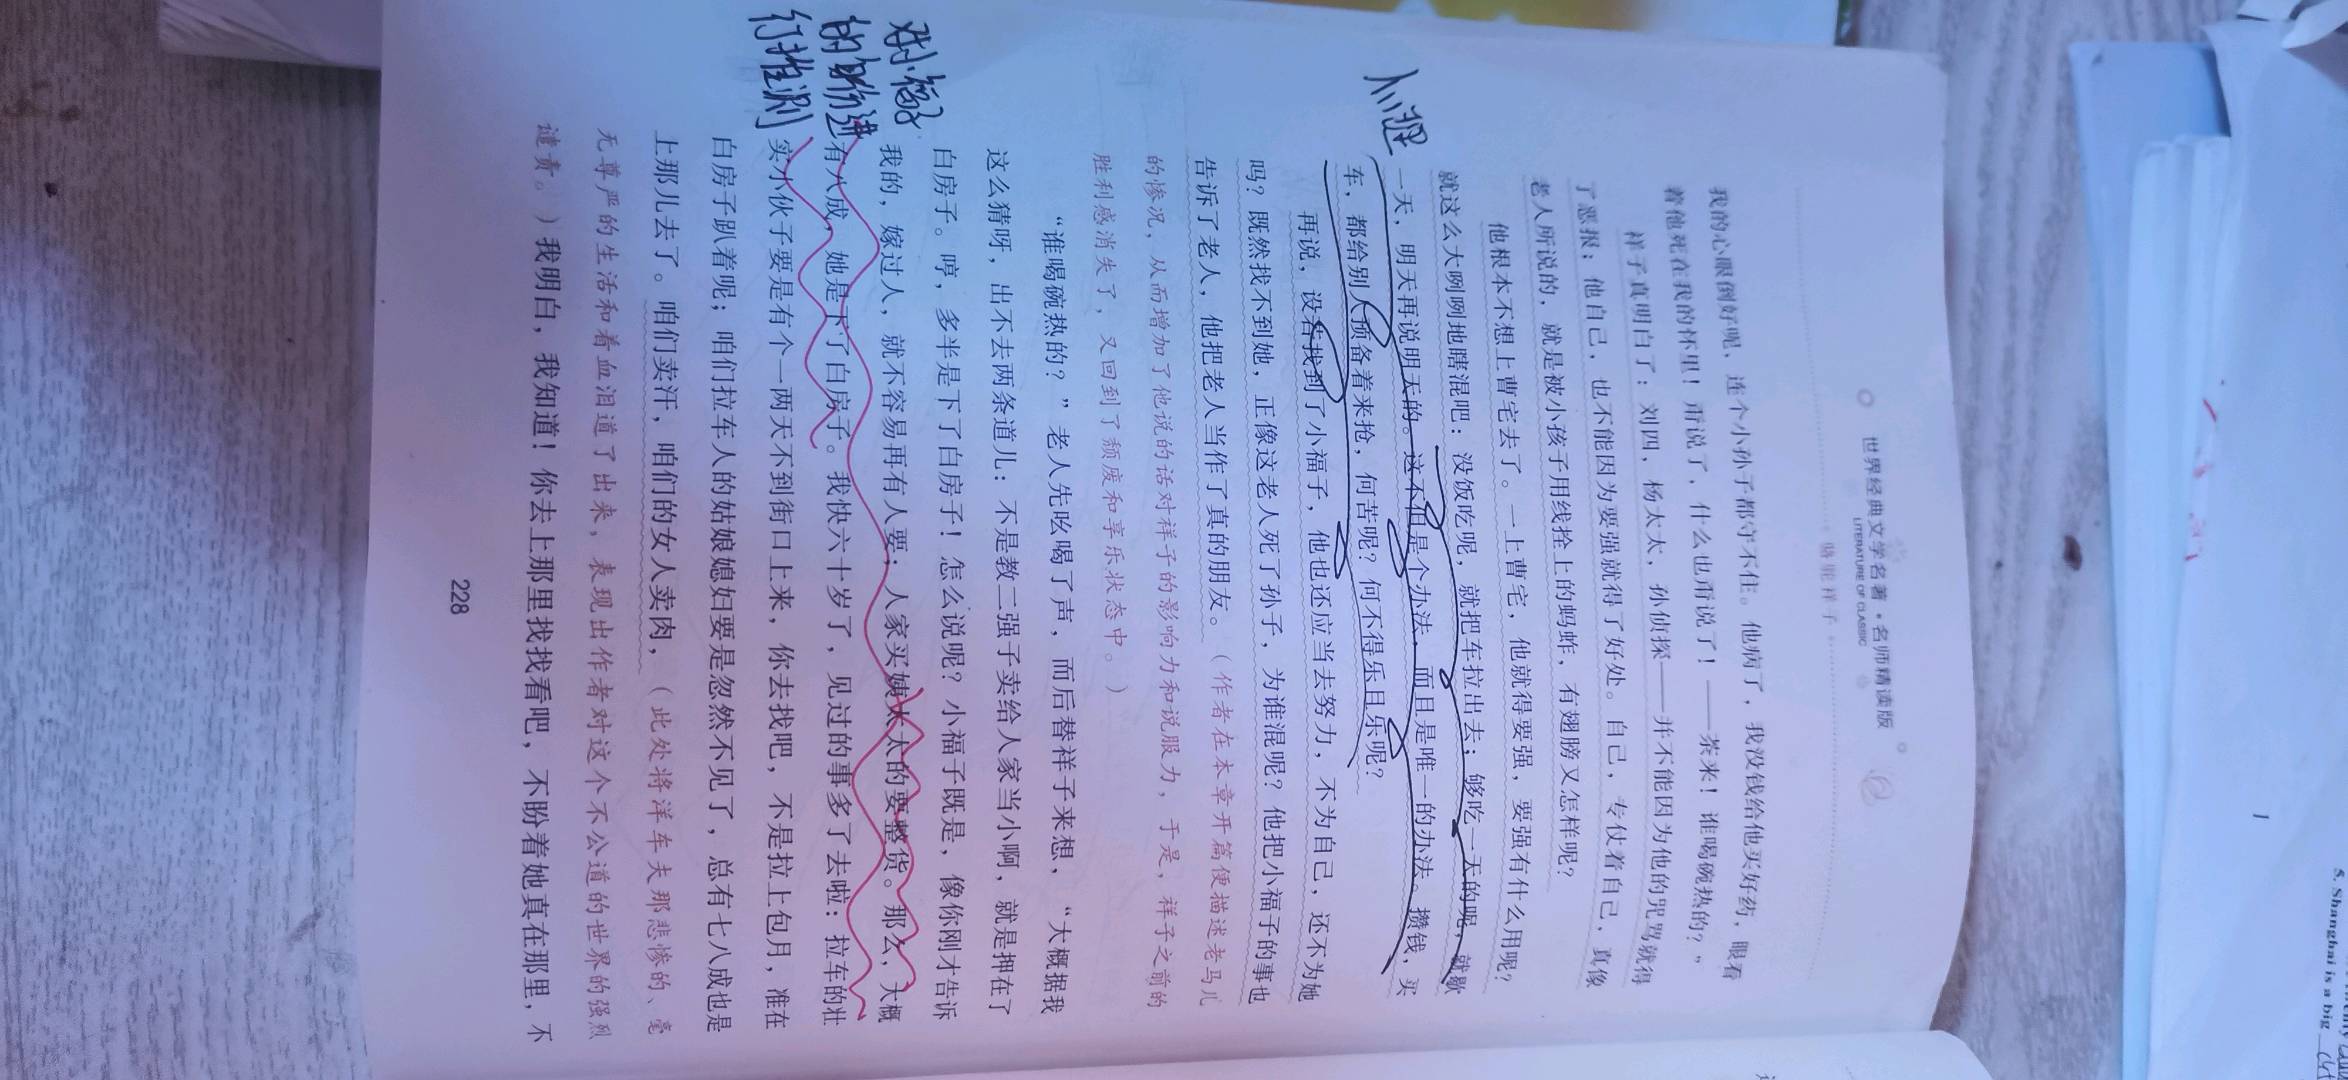 世界经典文学名著·名师精读版
LITERATURE OF CLASSIC
骆驼祥子
我的心眼倒好呢，连个小孙子都守不住。他病了，我没钱给他买好药，眼看
着他死在我的怀里！甭说了，什么也甭说了！——茶来！谁喝碗热的？”
祥子真明白了：刘四，杨太太，孙侦探——并不能因为他的咒骂就得
了恶报；他自己，也不能因为要强就得了好处。自己，专仗着自己，真像
老人所说的，就是被小孩子用线拴上的蚂蚱，有翅膀又怎样呢？
他根本不想上曹宅去了。一上曹宅，他就得要强，要强有什么用呢？
就这么大咧咧地瞎混吧：没饭吃呢，就把车拉出去；够吃一天的呢，就歇
心理
一天，明天再说明天的。这不但是个办法，而且是唯一的办法。攒钱，买
车，都给别人预备着来抢，何苦呢？何不得乐且乐呢？
再说，设若找到了小福子，他也还应当去努力，不为自己，还不为她
吗？既然找不到她，正像这老人死了孙子，为谁混呢？他把小福子的事也
告诉了老人，他把老人当作了真的朋友。（作者在本章开篇便描述老马儿
的惨况，从而增加了他说的话对祥子的影响力和说服力，于是，祥子之前的
胜利感消失了，又回到了颓废和享乐状态中。）
“谁喝碗热的？”老人先吆喝了声，而后替祥子来想，“大概据我
这么猜呀，出不去两条道儿：不是教二强子卖给人家当小啊，就是押在了
白房子。哼，多半是下了白房子！怎么说呢？小福子既是，像你刚才告诉
对小福子
的身份进
行推测
我的，嫁过人，就不容易再有人要；人家买姨太太的要整货。那么，大概
有八成，她是下了白房子。我快六十岁了，见过的事多了去啦：拉车的壮
实小伙子要是有个一两天不到街口上来，你去找吧，不是拉上包月，准在
白房子趴着呢；咱们拉车人的姑娘媳妇要是忽然不见了，总有七八成也是
上那儿去了。咱们卖汗，咱们的女人卖肉，（此处将洋车夫那悲惨的、毫
无尊严的生活和着血泪道了出来，表现出作者对这个不公道的世界的强烈
谴责。）我明白，我知道！你去上那里找找看吧，不盼着她真在那里，不
228
1
5. Shanghai is a big